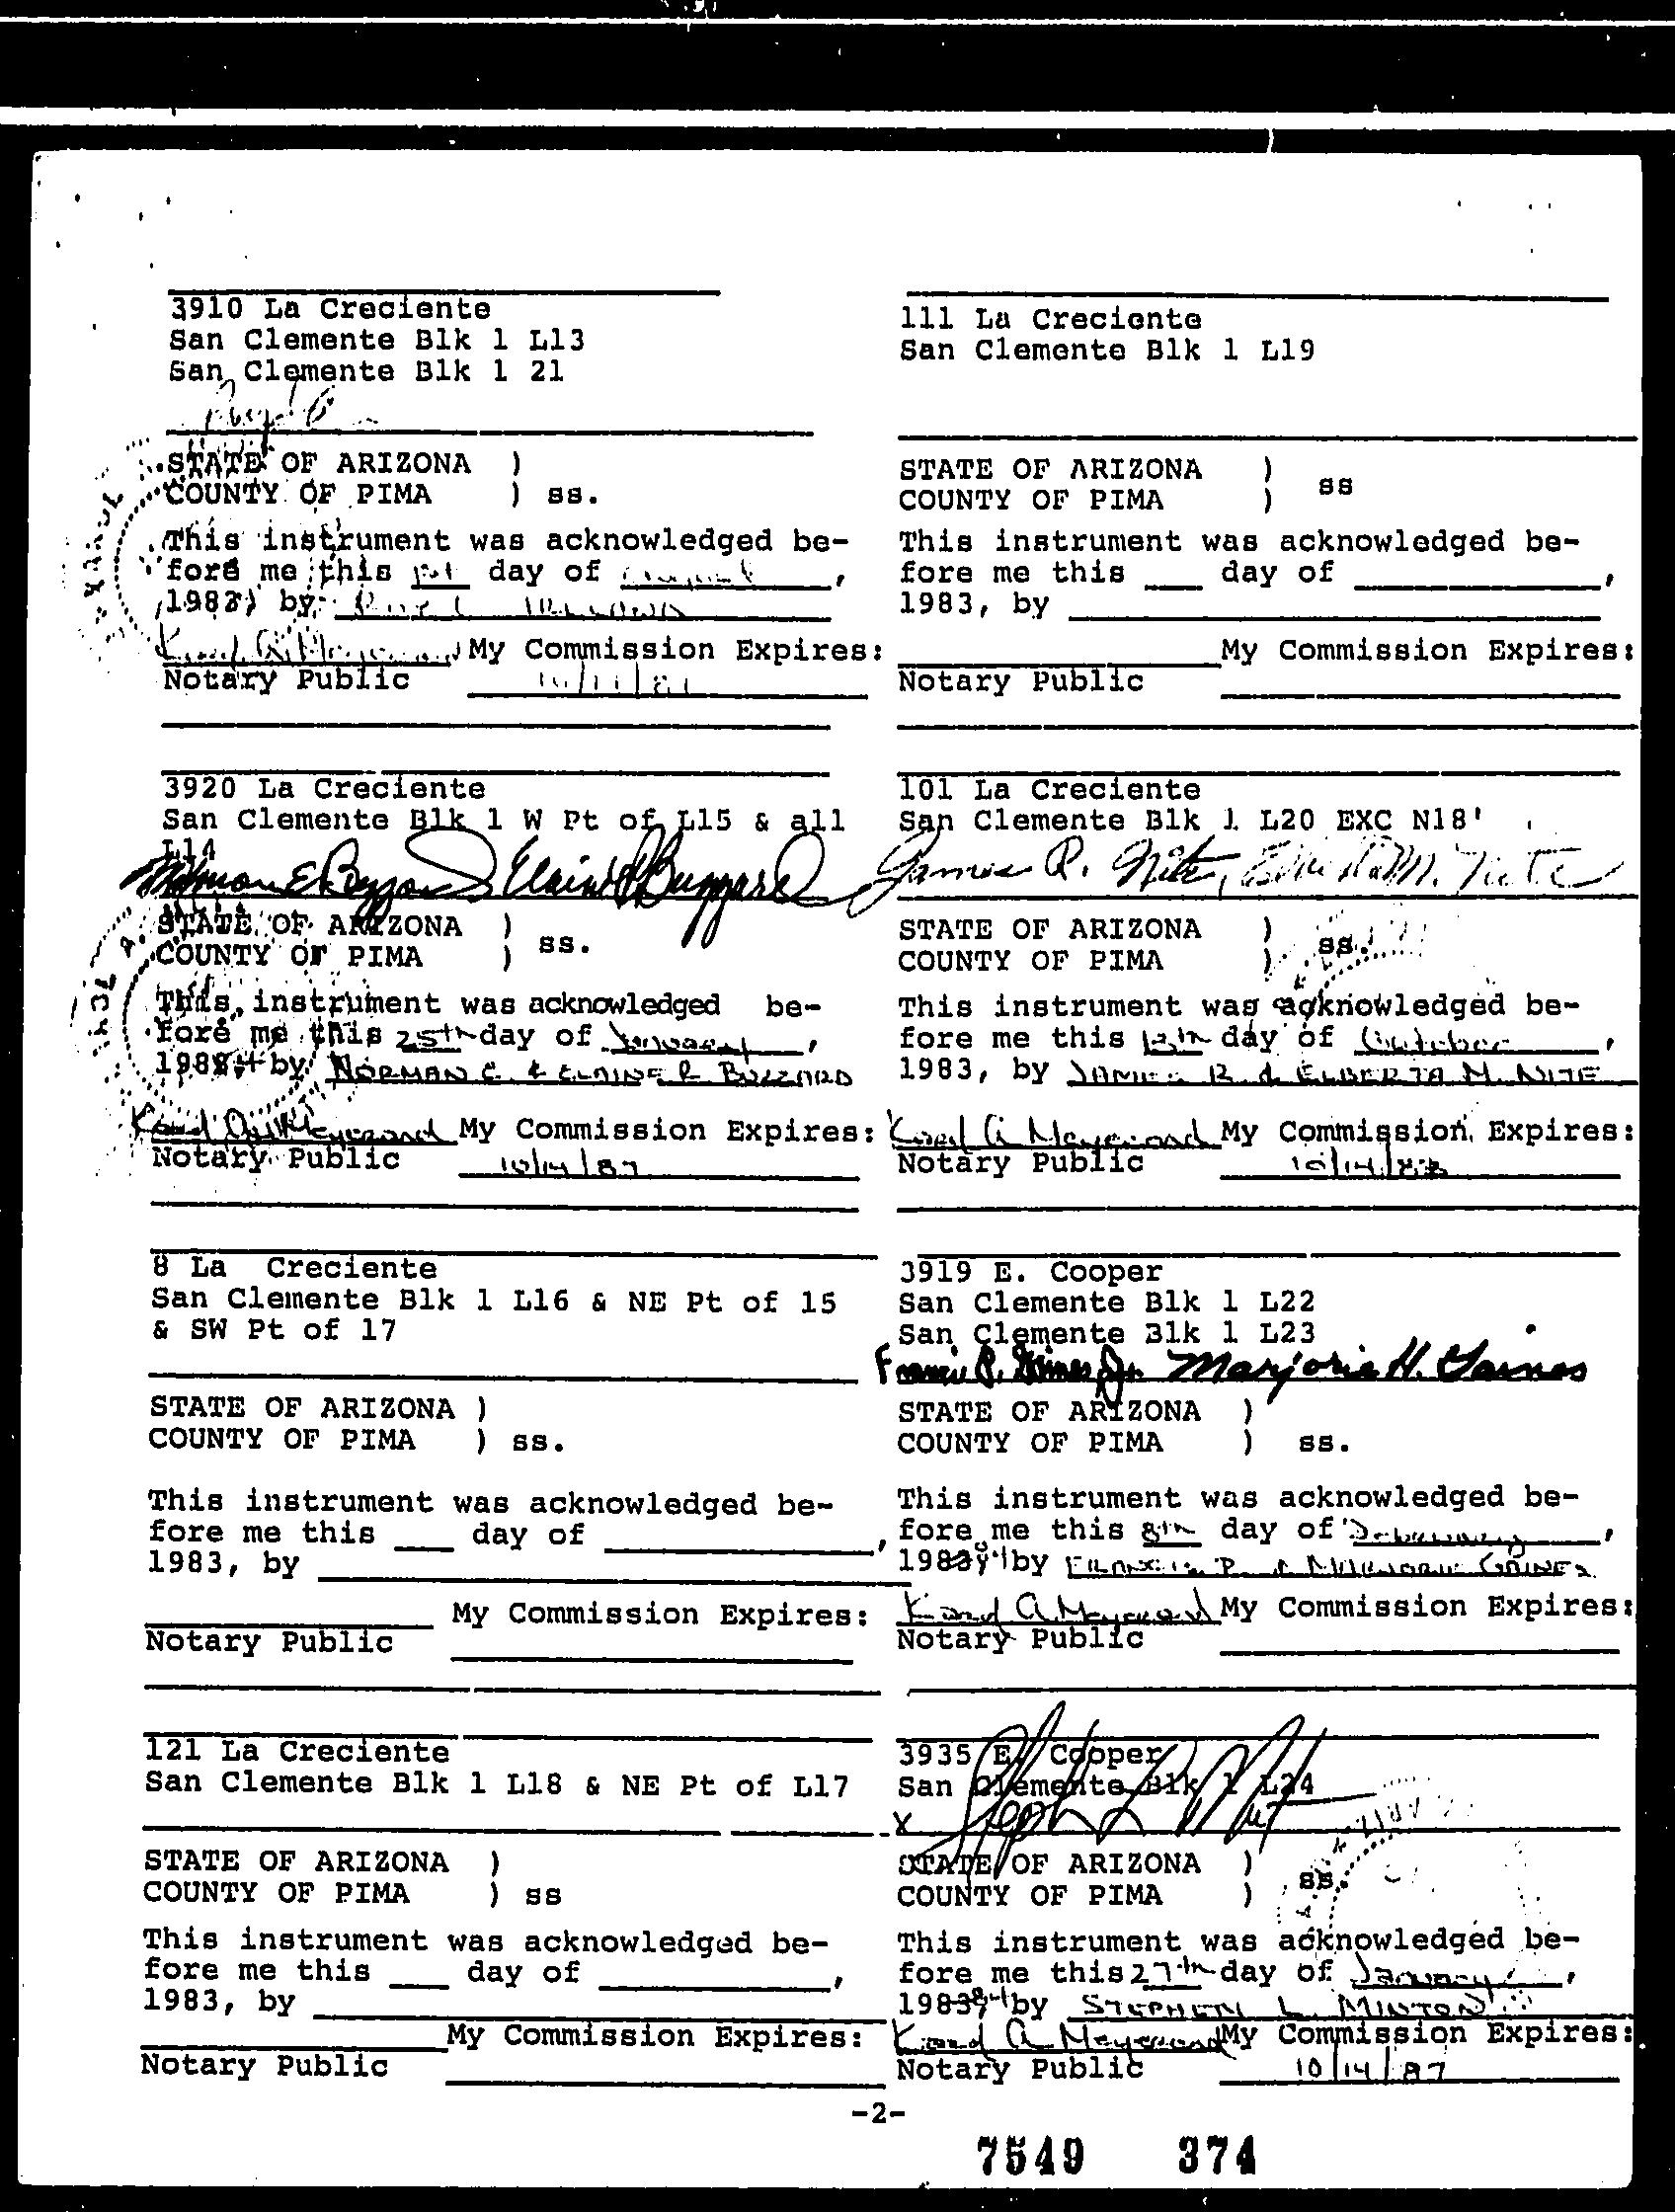 3910 La Creciente
San Clemente Blk 1 L13
San Clemente Blk 1 21
STATE OF ARIZONA )
COUNTY OF PIMA ) ss.
This instrument was acknowledged be-
fore me this 1st day of August,
1983, by
My Commission Expires:
Notary Public
3920 La Creciente
San Clemente Blk 1 W Pt of L15 & all
L14
Norman E Buzzard Elaine R Buzzard
STATE OF ARIZONA )
COUNTY OF PIMA ) ss.
This instrument was acknowledged be-
fore me this 25th day of January,
1984 by NORMAN E. & ELAINE R BUZZARD
My Commission Expires:
Notary Public 10/14/87
8 La Creciente
San Clemente Blk 1 L16 & NE Pt of 15
& SW Pt of 17
STATE OF ARIZONA )
COUNTY OF PIMA ) ss.
This instrument was acknowledged be-
fore me this ___ day of ___,
1983, by
My Commission Expires:
Notary Public
121 La Creciente
San Clemente Blk 1 L18 & NE Pt of L17
STATE OF ARIZONA )
COUNTY OF PIMA ) ss
This instrument was acknowledged be-
fore me this ___ day of ___,
1983, by
My Commission Expires:
Notary Public
111 La Creciente
San Clemente Blk 1 L19
STATE OF ARIZONA )
COUNTY OF PIMA ) ss
This instrument was acknowledged be-
fore me this ___ day of ___,
1983, by
My Commission Expires:
Notary Public
101 La Creciente
San Clemente Blk 1 L20 EXC N18'
James R. Nite, Elberta M. Nite
STATE OF ARIZONA )
COUNTY OF PIMA ) ss.
This instrument was acknowledged be-
fore me this 12th day of October,
1983, by JAMES R. & ELBERTA M. NITE
My Commission Expires:
Notary Public
3919 E. Cooper
San Clemente Blk 1 L22
San Clemente Blk 1 L23
Francis P. Gaines Jr. Marjorie H. Gaines
STATE OF ARIZONA )
COUNTY OF PIMA ) ss.
This instrument was acknowledged be-
fore me this 8th day of February,
1984 by FRANCIS P. & MARJORIE GAINES
My Commission Expires:
Notary Public
3935 E. Cooper
San Clemente Blk 1 L24
X
STATE OF ARIZONA )
COUNTY OF PIMA ) ss.
This instrument was acknowledged be-
fore me this 27th day of January,
1984 by STEPHEN L. MINTON
My Commission Expires:
Notary Public 10/14/87
-2-
7549 374